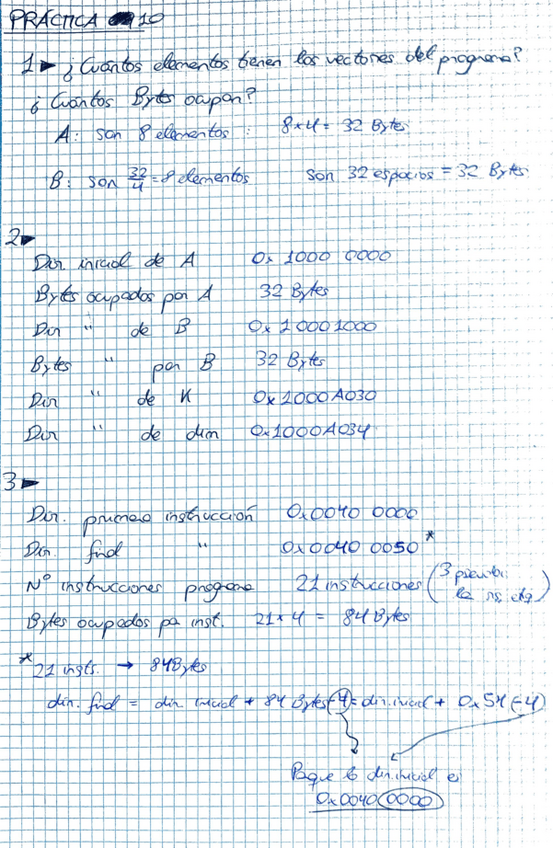 PRÁCTICA 10
1► ¿Cuántos elementos tienen los vectores del programa?
¿Cuántos Bytes ocupan?
A: son 8 elementos : 8x4 = 32 Bytes
B: son 32/4 = 8 elementos son 32 espacios = 32 Bytes
2►
Dir. inicial de A 0x 1000 0000
Bytes ocupados por A 32 Bytes
Dir " de B 0x10001000
Bytes " por B 32 Bytes
Dir " de K 0x1000A030
Dir " de dim 0x1000A034
3►
Dir. primera instrucción 0x0040 0000
Dir. final " 0x0040 0050 *
Nº instrucciones programa 21 instrucciones (3
Bytes ocupados por inst. 21x4 = 84 Bytes
* 21 insts. → 84Bytes
dir. final = dir. inicial + 84 Bytes(-4) = dir. inicial + 0x54(-4)
Porque la dir. inicial es
0x00400000